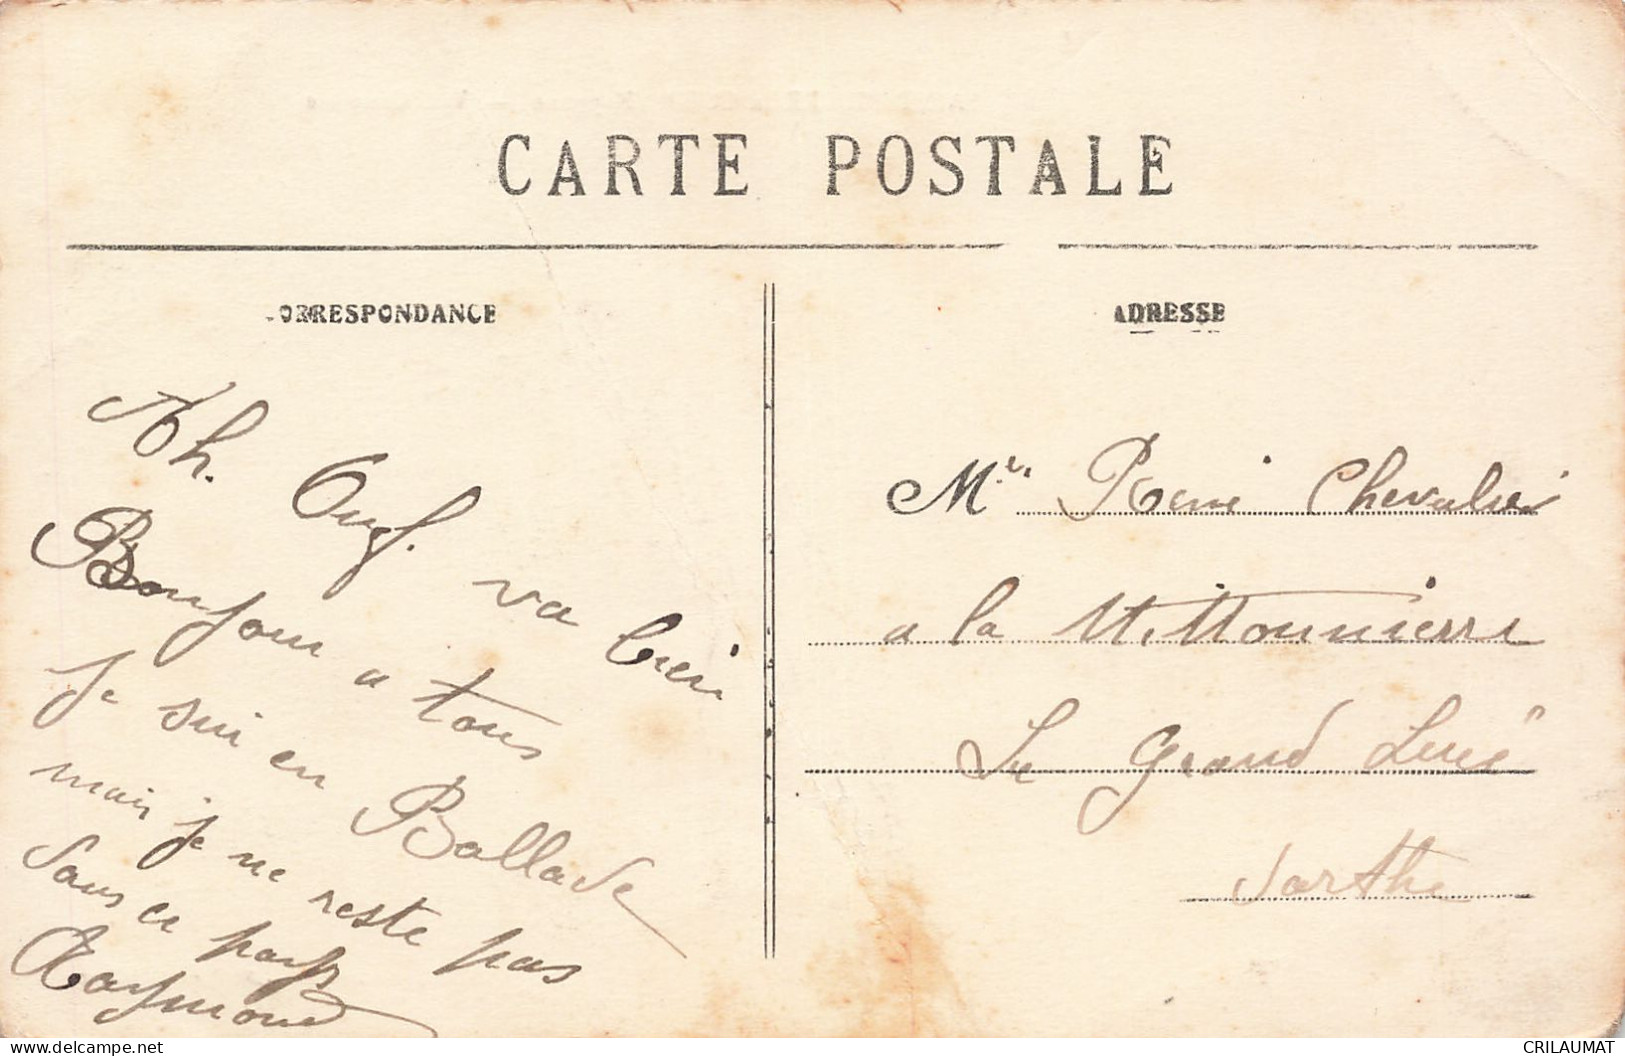 CARTE POSTALE
CORRESPONDANCE
Ah. Ouf. va bien
Bonjour a tous
Je sui en Ballade
mais je ne reste pas
dans ce pays
Raymond
ADRESSE
René Chevalier
a la
Le Grand Lucé
Sarthe
delcampe.net
CRILAUMAT